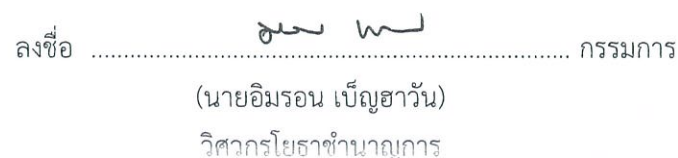 ลงชื่อ ........................................................................... กรรมการ
(นายอิมรอน เบ็ญฮาวัน)
วิศวกรโยธาชำนาญการ